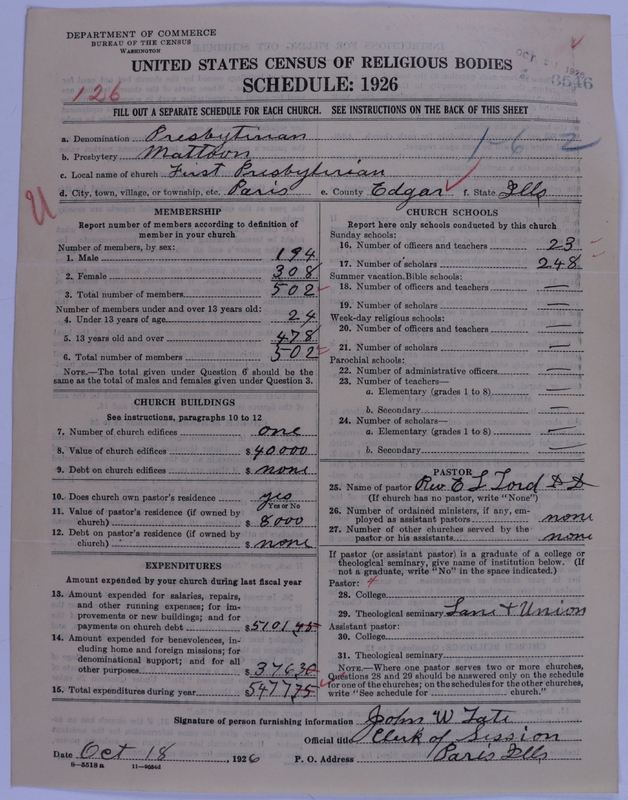 DEPARTMENT OF COMMERCE
BUREAU OF THE CENSUS
WASHINGTON
UNITED STATES CENSUS OF RELIGIOUS BODIES
SCHEDULE: 1926
126
FILL OUT A SEPARATE SCHEDULE FOR EACH CHURCH. SEE INSTRUCTIONS ON THE BACK OF THIS SHEET
1-6 2
a. Denomination Presbyterian
b. Presbytery Mattoon
c. Local name of church First Presbyterian
d. City, town, village, or township, etc. Paris e. County Edgar f. State Ills
U
MEMBERSHIP
Report number of members according to definition of
member in your church
Number of members, by sex:
1. Male 194
2. Female 308
3. Total number of members 502
Number of members under and over 13 years old:
4. Under 13 years of age 24
5. 13 years old and over 478
6. Total number of members 502
NOTE.—The total given under Question 6 should be
same as the total of males and females given under Question 3.
CHURCH BUILDINGS
See instructions, paragraphs 10 to 12
7. Number of church edifices one
8. Value of church edifices $ 40000
9. Debt on church edifices $ none
10. Does church own pastor's residence yes
Yes or No
11. Value of pastor's residence (if owned by
church) $ 8000
12. Debt on pastor's residence (if owned by
church) $ none
EXPENDITURES
Amount expended by your church during last fiscal year
13. Amount expended for salaries, repairs,
and other running expenses; for im-
provements or new buildings; and for
payments on church debt $ 5101.45
14. Amount expended for benevolences, in-
cluding home and foreign missions; for
denominational support; and for all
other purposes $ 376.30
15. Total expenditures during year 5477.75
CHURCH SCHOOLS
Report here only schools conducted by this church
Sunday schools:
16. Number of officers and teachers 23
17. Number of scholars 248
Summer vacation Bible schools:
18. Number of officers and teachers —
19. Number of scholars —
Week-day religious schools:
20. Number of officers and teachers —
21. Number of scholars —
Parochial schools:
22. Number of administrative officers —
23. Number of teachers—
a. Elementary (grades 1 to 8) —
b. Secondary —
24. Number of scholars—
a. Elementary (grades 1 to 8) —
b. Secondary —
PASTOR
25. Name of pastor Rev E L Lord D D
(If church has no pastor, write "None")
26. Number of ordained ministers, if any, em-
ployed as assistant pastors none
27. Number of other churches served by the
pastor or his assistants none
If pastor (or assistant pastor) is a graduate of a college or
theological seminary, give name of institution below. (If
not a graduate, write "No" in the space indicated.)
Pastor:
28. College
29. Theological seminary Lane & Union
Assistant pastor:
30. College
31. Theological seminary
NOTE.—Where one pastor serves two or more churches,
Questions 28 and 29 should be answered only on the schedule
for one of the churches; on the schedules for the other churches,
write "See schedule for church."
Signature of person furnishing information John W Tate
Official title Clerk of Session
Date Oct 18, 1926 P. O. Address Paris Ills
8—5518 a